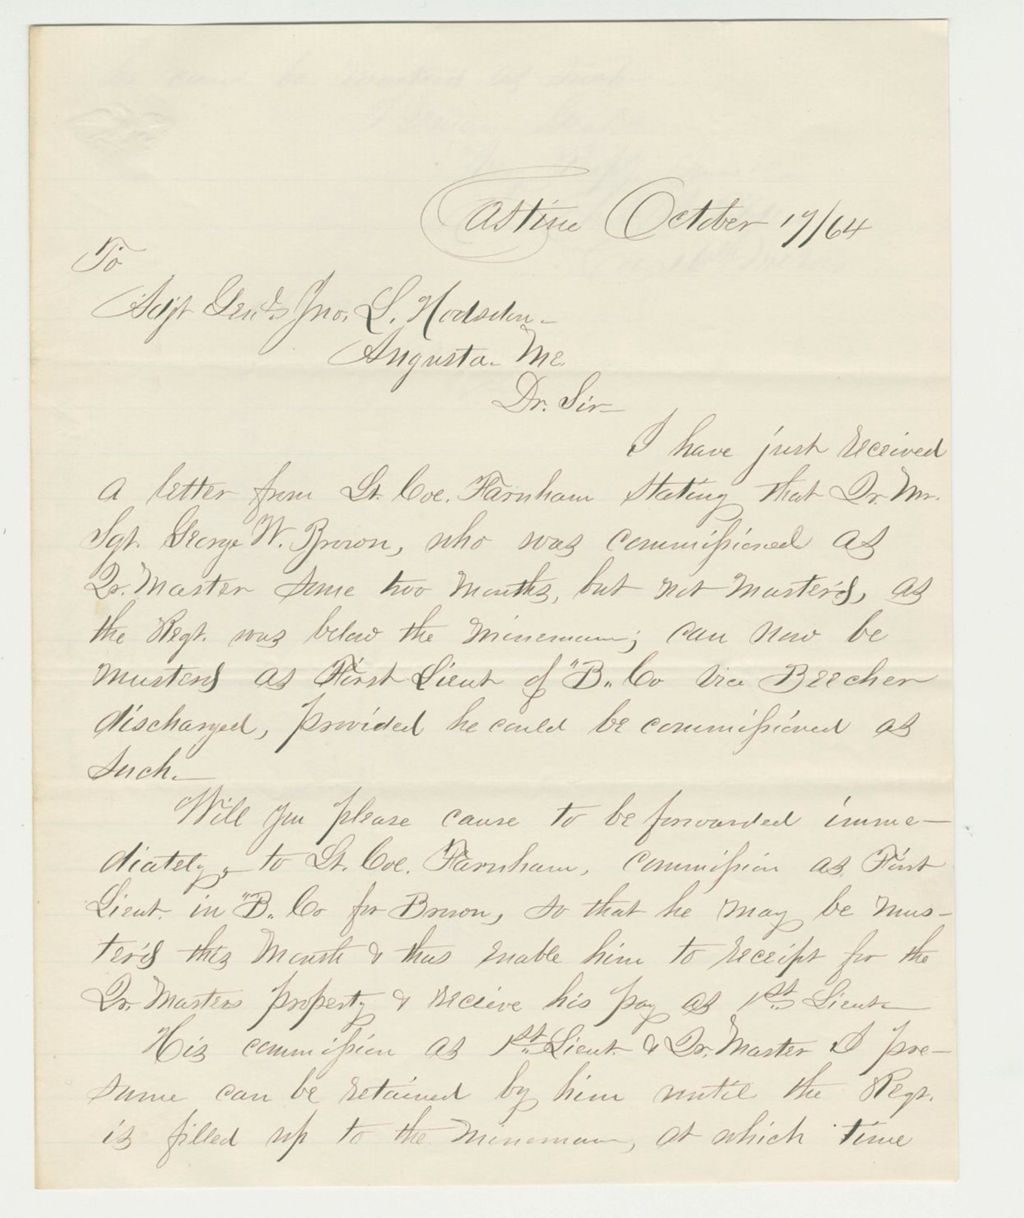 Castine October 17/64
To
Adjt Genl Jno. L. Hodsdon
Augusta Me.
Dr. Sir
I have just received
a letter from Lt. Col. Farnham stating that Qr. Mr.
Sgt. George W. Brown, who was commissioned as
Qr. Master some two months, but not Muster'd, as
the Regt. was below the minemum; can now be
musterd as First Lieut of "B" Co vice Beecher
discharged, provided he could be commissioned as
such.
Will you please cause to be forwarded imme-
diately, to Lt. Col. Farnham, commission as First
Lieut. in "B" Co for Brown, so that he may be mus-
ter'd this Month & thus enable him to receipt for the
Qr. Masters property & recieve his pay as 1st. Lieut
His commission as 1st. Lieut & Qr. Master I pre-
sume can be retained by him until the Regt.
is filled up to the minemum, at which time